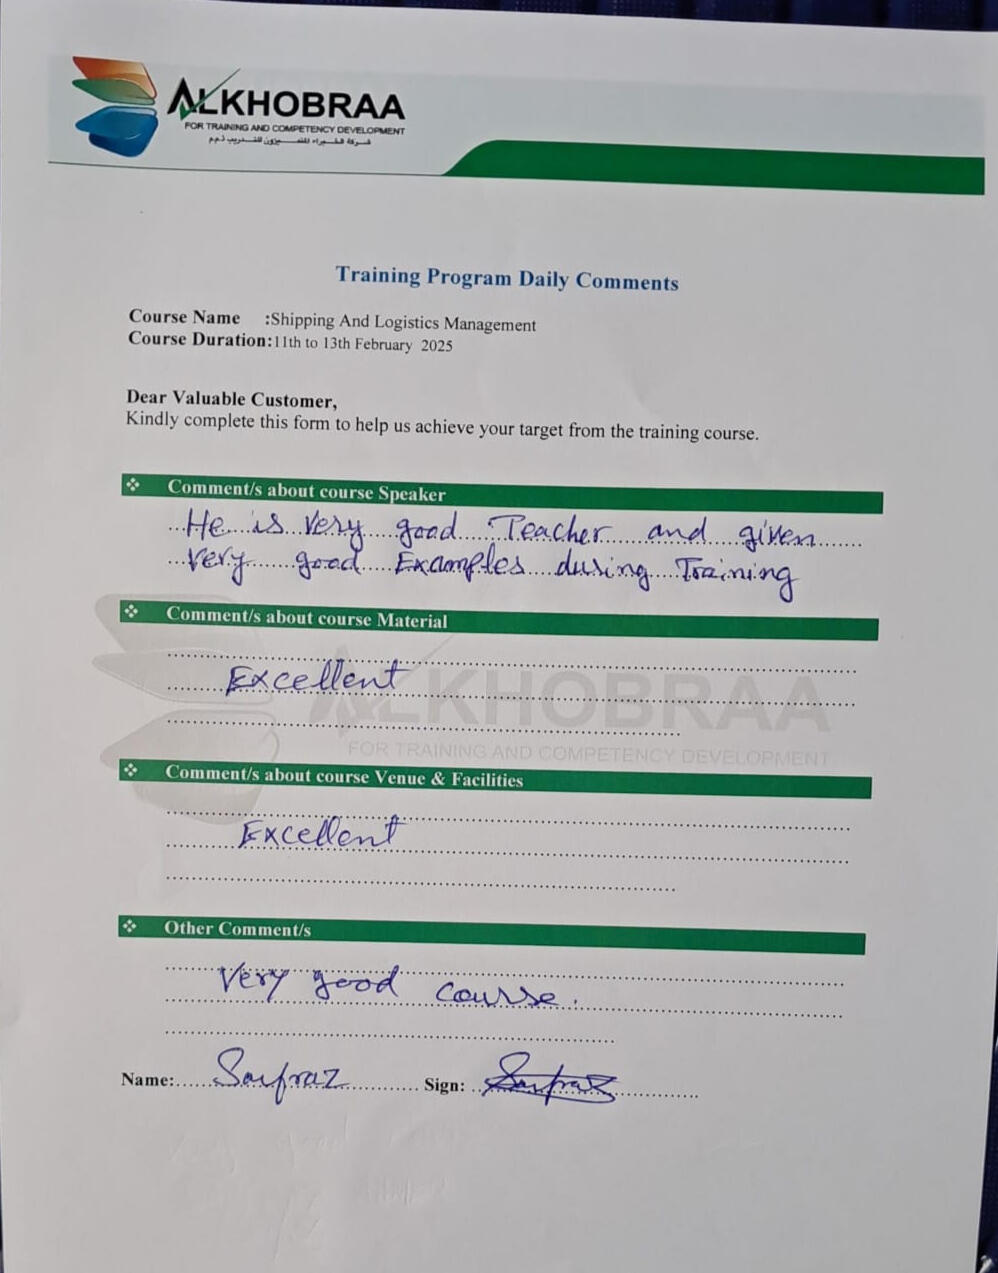 ALKHOBRAA
FOR TRAINING AND COMPETENCY DEVELOPMENT
Training Program Daily Comments
Course Name :Shipping And Logistics Management
Course Duration:11th to 13th February 2025
Dear Valuable Customer,
Kindly complete this form to help us achieve your target from the training course.
Comment/s about course Speaker
He is very good Teacher and given
very good Examples during Training
Comment/s about course Material
Excellent
ALKHOBRAA
FOR TRAINING AND COMPETENCY DEVELOPMENT
Comment/s about course Venue & Facilities
Excellent
Other Comment/s
Very good course.
Name: Sarfraz Sign: Sarfraz